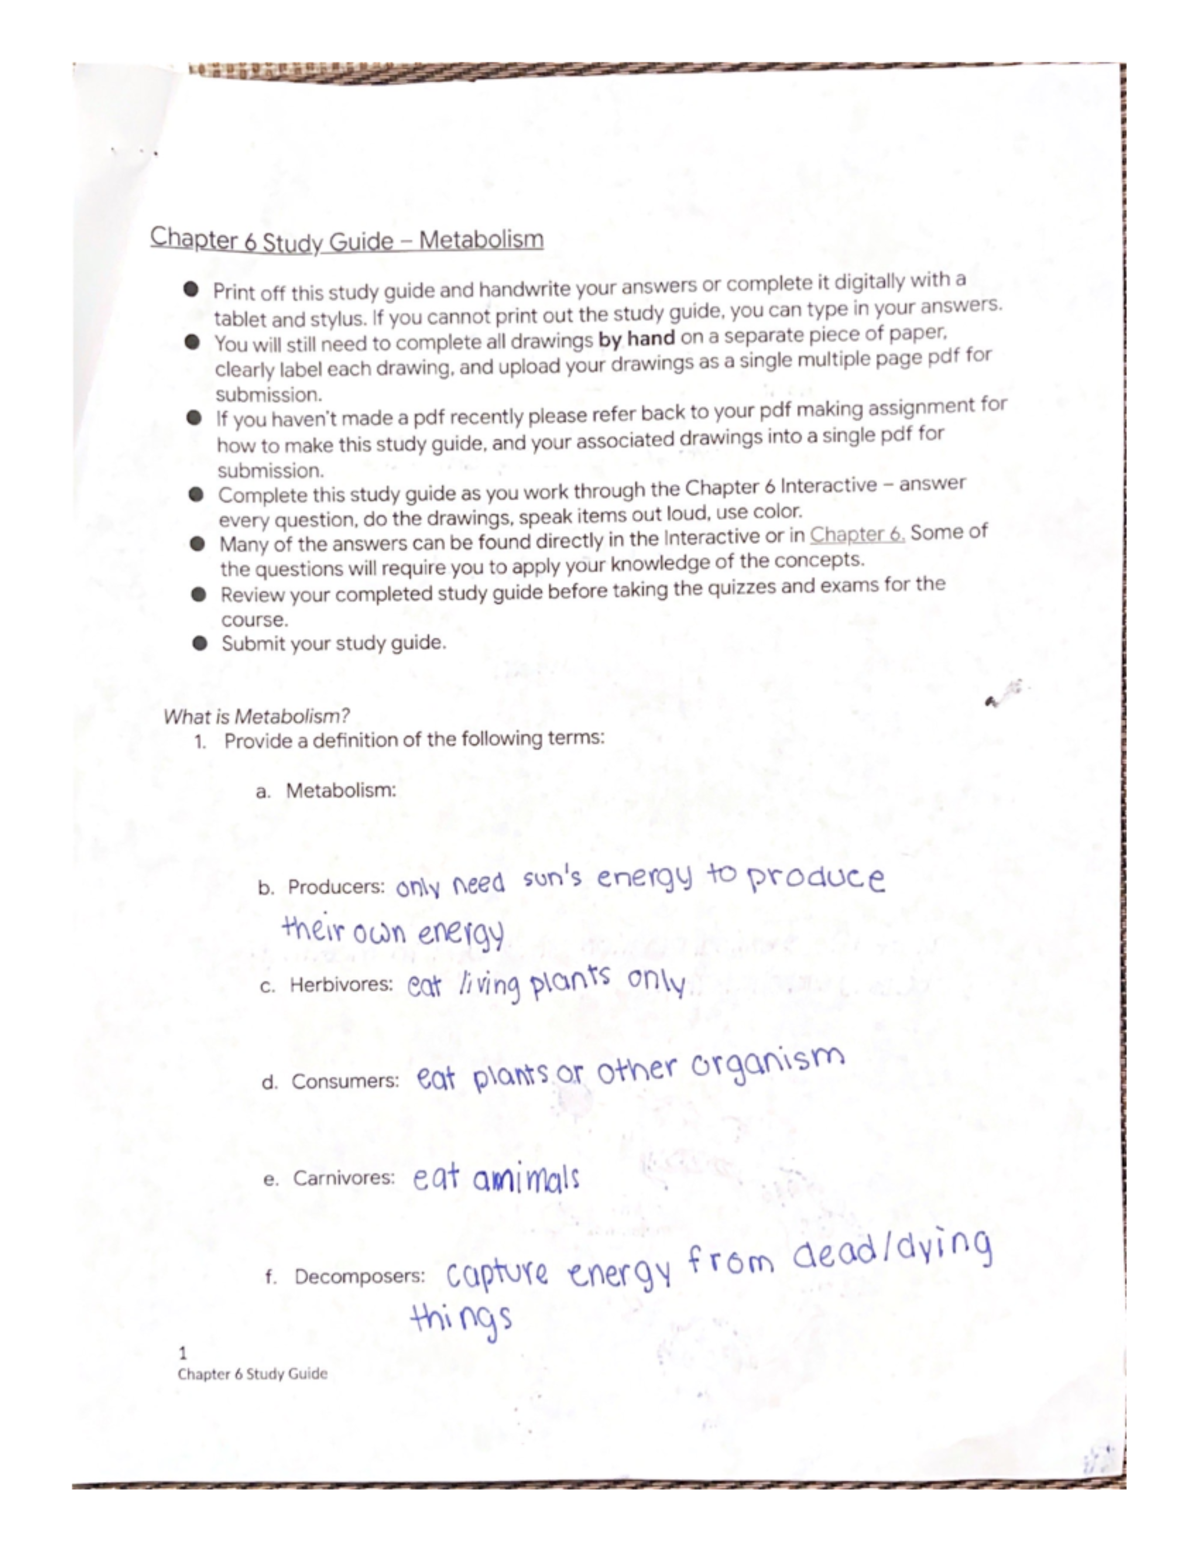 Chapter 6 Study Guide – Metabolism
● Print off this study guide and handwrite your answers or complete it digitally with a
tablet and stylus. If you cannot print out the study guide, you can type in your answers.
● You will still need to complete all drawings by hand on a separate piece of paper,
clearly label each drawing, and upload your drawings as a single multiple page pdf for
submission.
● If you haven't made a pdf recently please refer back to your pdf making assignment for
how to make this study guide, and your associated drawings into a single pdf for
submission.
● Complete this study guide as you work through the Chapter 6 Interactive – answer
every question, do the drawings, speak items out loud, use color.
● Many of the answers can be found directly in the Interactive or in Chapter 6. Some of
the questions will require you to apply your knowledge of the concepts.
● Review your completed study guide before taking the quizzes and exams for the
course.
● Submit your study guide.
What is Metabolism?
1. Provide a definition of the following terms:
a. Metabolism:
b. Producers: only need sun's energy to produce
their own energy
c. Herbivores: eat living plants only
d. Consumers: eat plants or other organism
e. Carnivores: eat amimals
f. Decomposers: capture energy from dead/dying
things
1
Chapter 6 Study Guide